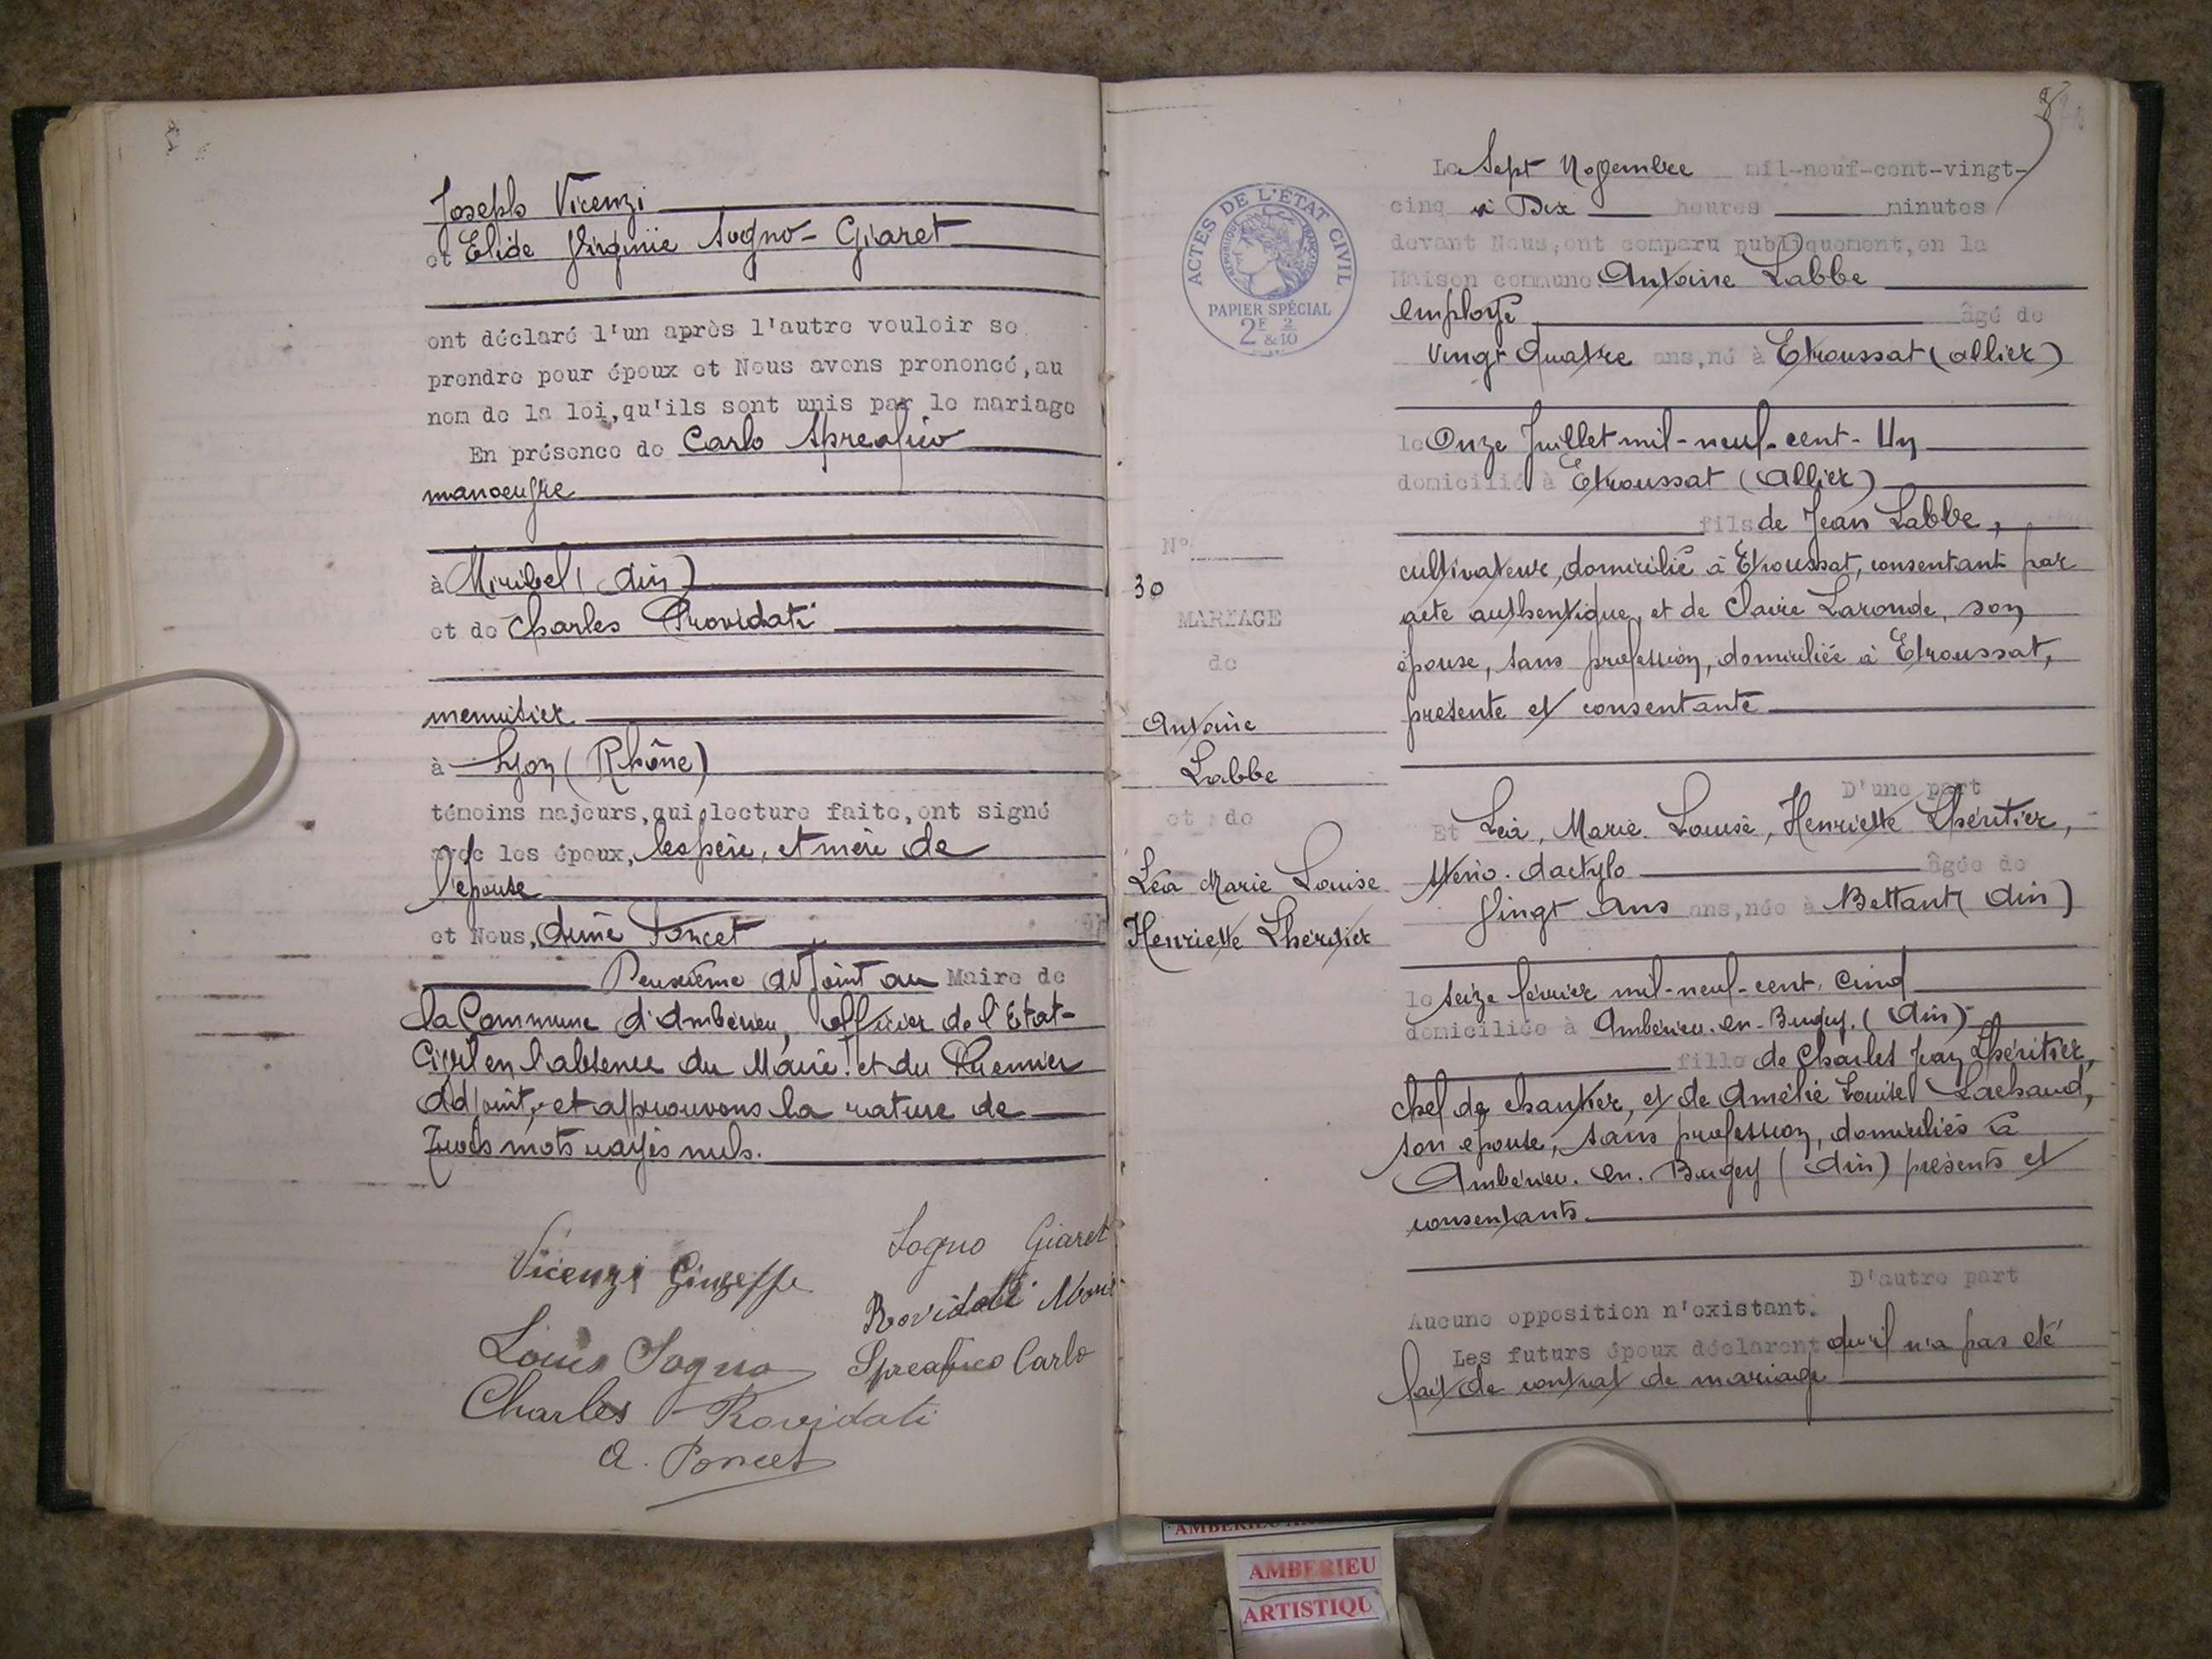 Joseph Vicenzi
et Elide Virginie Sogno-Giaret
ont déclaré l'un après l'autre vouloir se
prendre pour époux et Nous avons prononcé, au
nom de la loi, qu'ils sont unis par le mariage
En présence de Carlo Spreafico
manoeuvre
à Miribel (Ain)
et de Charles Providati
menuisier
à Lyon (Rhône)
témoins majeurs, qui, lecture faite, ont signé
avec les époux, les père, et mère de
l'épouse
et Nous, Aimé Poncet
Deuxième Adjoint au Maire de
la Commune d'Ambérieu, officier de l'Etat-
Civil en l'absence du Maire et du Premier
Adjoint, et approuvons la rature de
Trois mots rayés nuls.
Vicenzi Giuseppe
Sogno Giaret
Rovidati
Louis Sogno
Spreafico Carlo
Charles Rovidati
A. Poncet
ACTES DE L'ÉTAT CIVIL
PAPIER SPÉCIAL
2F & 2/10
N°
30
MARIAGE
de
Antoine
Labbe
et de
Léa Marie Louise
Henriette Lhéritier
Le Sept Novembre mil-neuf-cent-vingt-
cinq à Dix heures minutes
devant Nous, ont comparu publiquement, en la
Maison commune Antoine Labbe
employé âgé de
Vingt Quatre ans, né à Etroussat (Allier)
le Onze Juillet mil-neuf-cent-Un
domicilié à Etroussat (Allier)
fils de Jean Labbe,
cultivateur, domicilié à Etroussat, consentant par
acte authentique, et de Claire Laronde, son
épouse, sans profession, domiciliée à Etroussat,
présente et consentante
D'une part
Et Léa, Marie. Louise, Henriette Lhéritier,
sténo. dactylo âgée de
Vingt ans ans, née à Bettant (Ain)
le seize février mil-neuf-cent. Cinq
domiciliée à Ambérieu. en-Bugey. (Ain)
fille de Charles Jean Lhéritier,
chef de chantier, et de Amélie Louise Lachaud,
son épouse, sans profession, domiciliés à
Ambérieu. en. Bugey (Ain) présents et
consentants.
D'autre part
Aucune opposition n'existant.
Les futurs époux déclarent qu'il n'a pas été
fait de contrat de mariage
AMBERIEU
ARTISTIQU